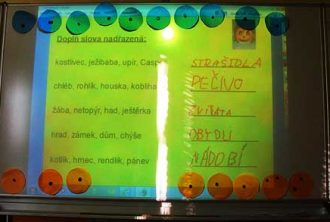 Doplň slova nadřazená:
kostivec, ježibaba, upír, Casp STRAŠIDLA
chléb, rohlík, houska, kobliha PEČIVO
žába, netopýr, had, ještěrka ZVÍŘATA
hrad, zámek, dům, chýše OBYDLÍ
kotlík, hrnec, rendlík, pánev NÁDOBÍ